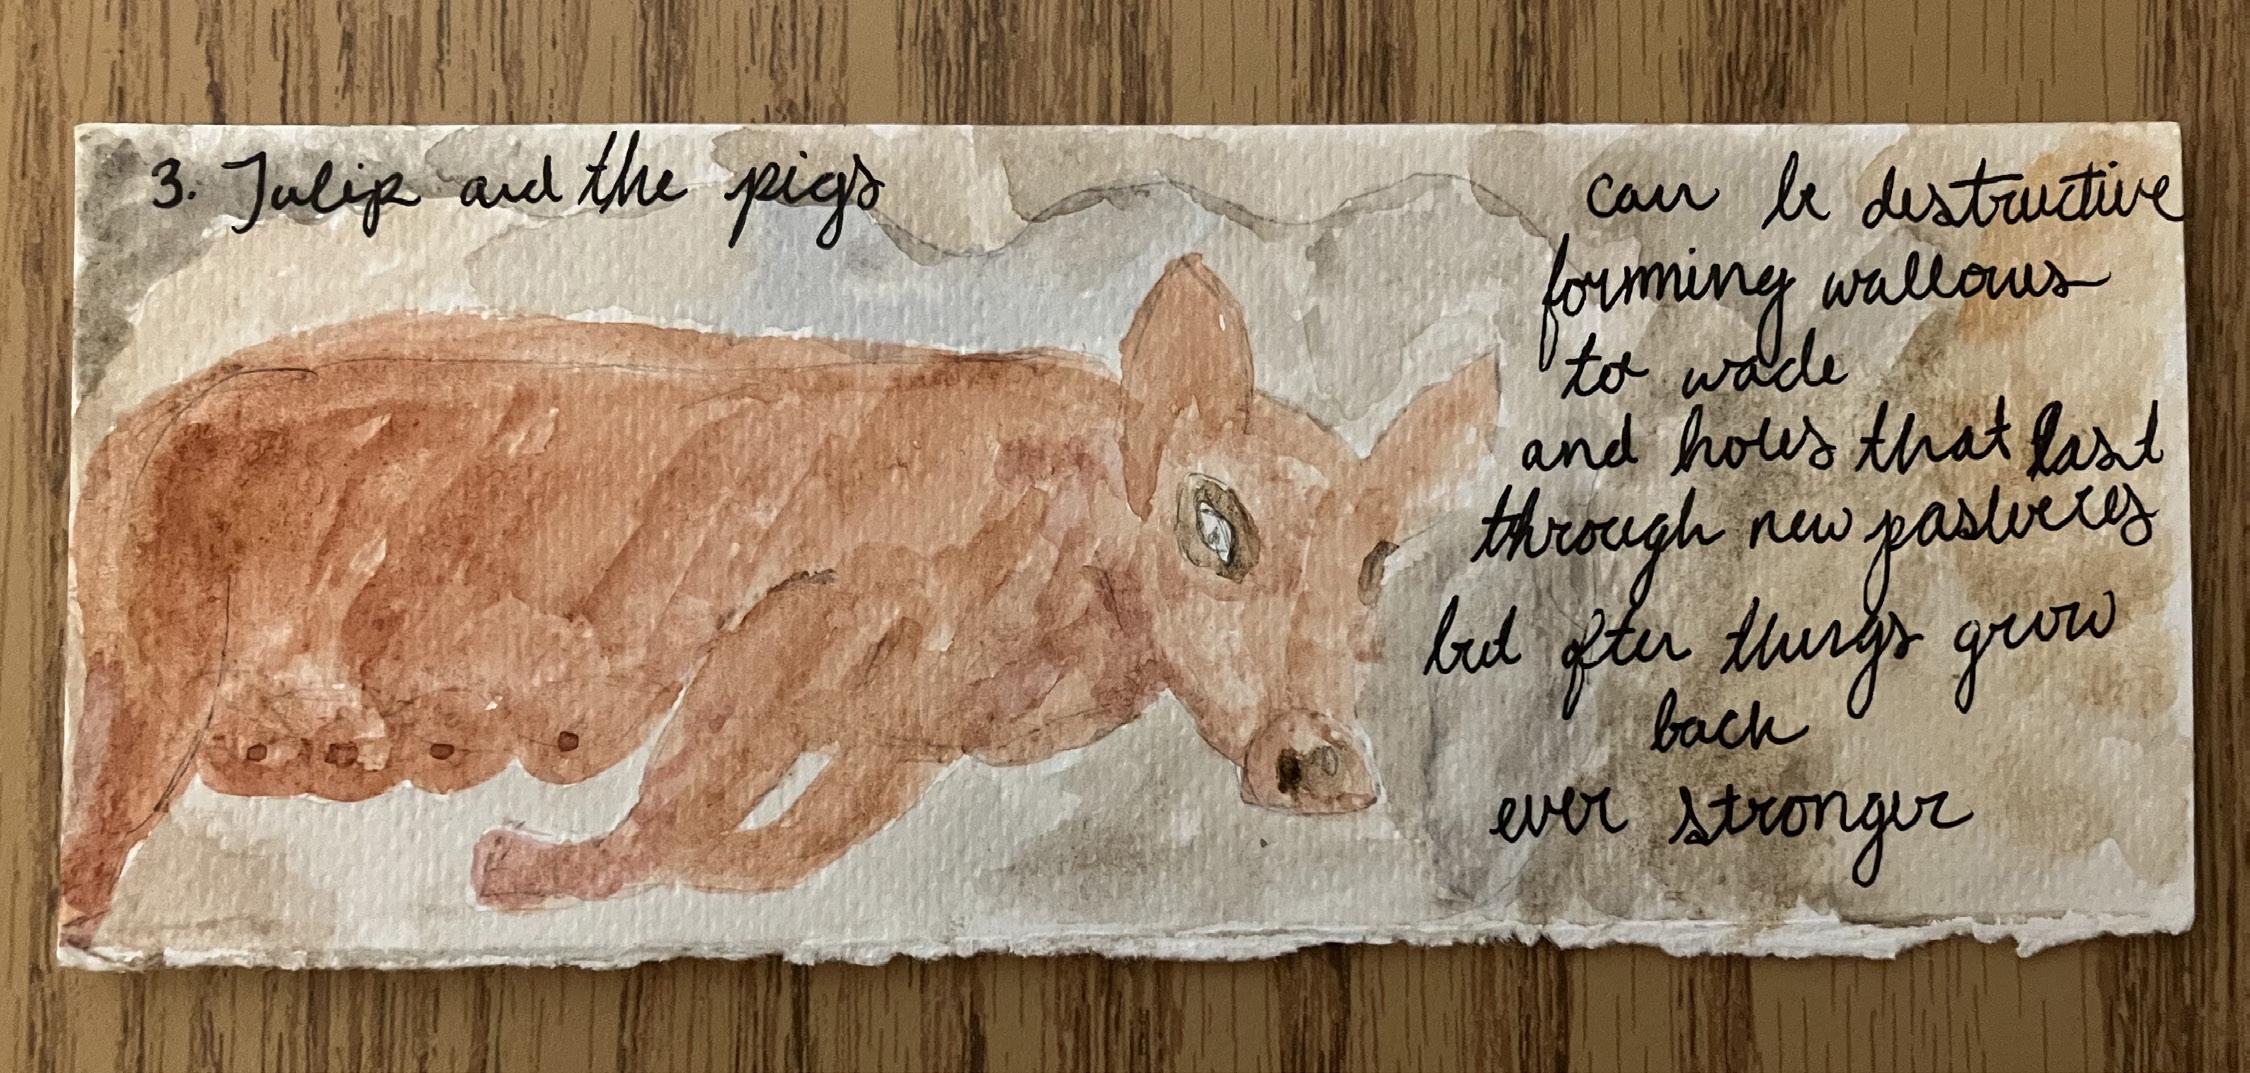 3. Tulip and the pigs
can be destructive
forming wallows
to wade
and holes that last
through new pastures
but often things grow
back
ever stronger